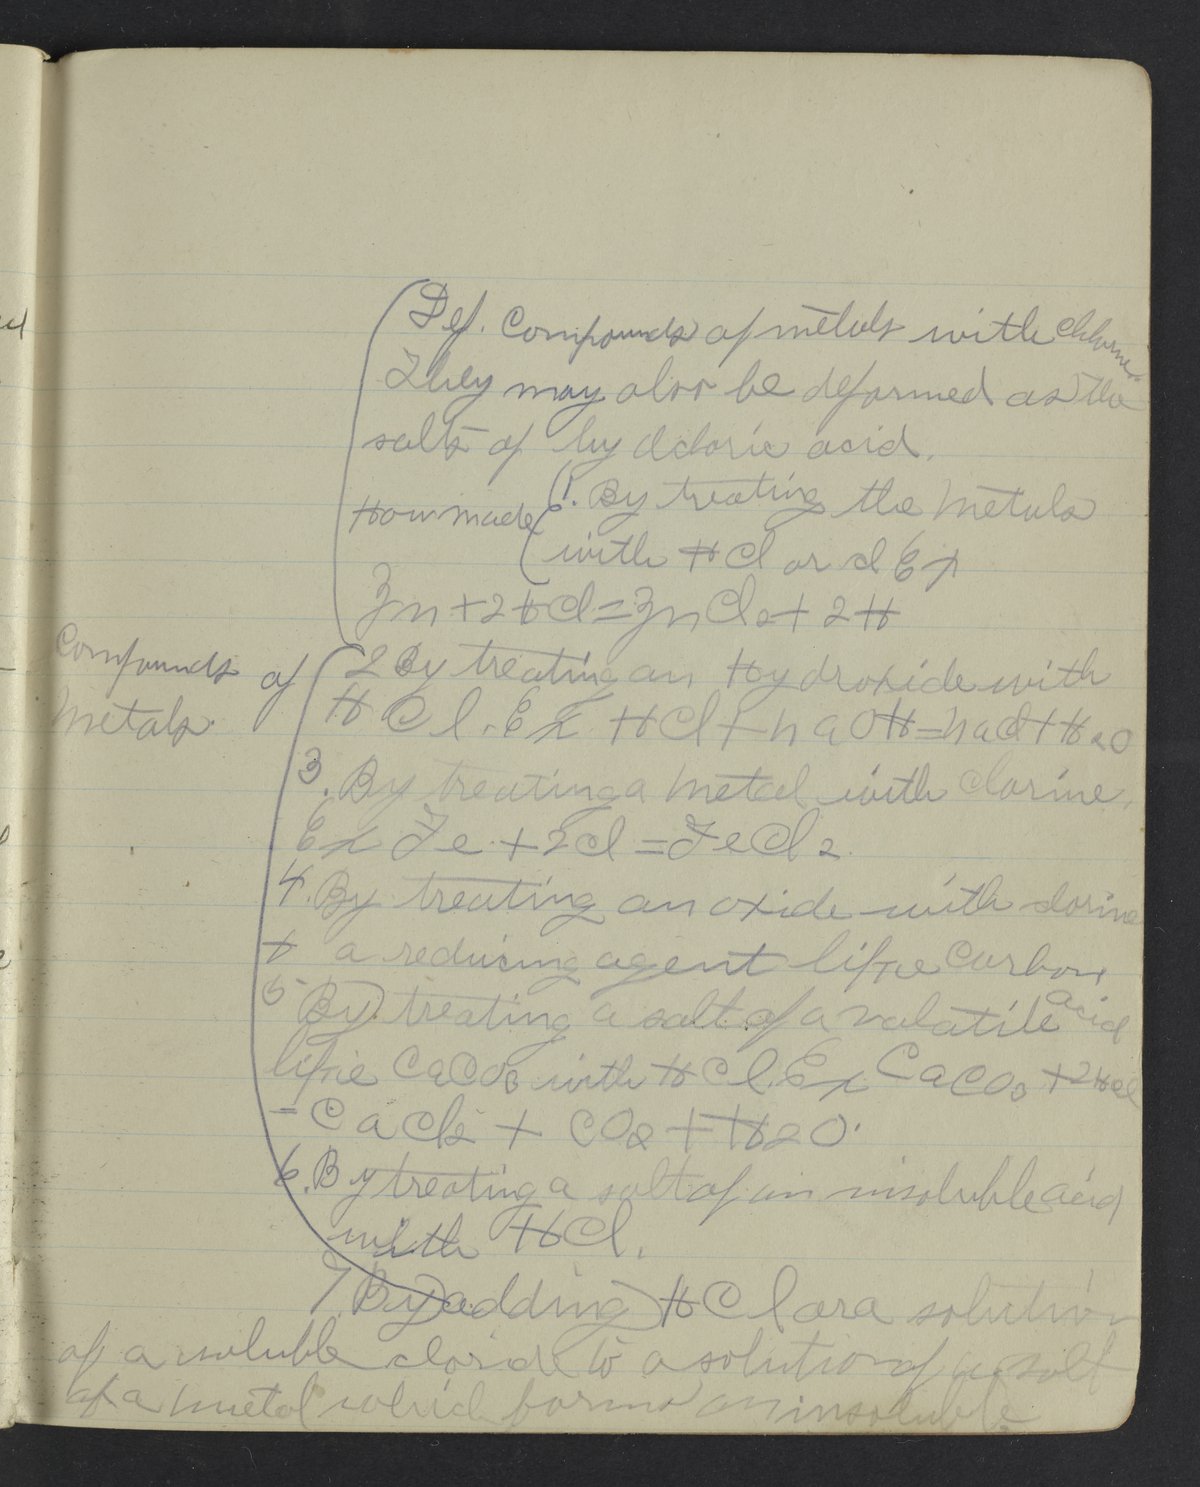 Def. Compounds of metals with Chlorine.
They may also be deformed as the
salts of hydcloric acid.
How made 1. By treating the metals
with HCl or cl Ex
Zn + 2HCl = ZnCl2 + 2H
Compounds of
Metals.
2 By treating an Hydroxide with
HCl. Ex HCl + naOH = nacl + H2O
3. By treating a metal with clorine.
Ex Fe + 2Cl = FeCl2.
4. By treating an oxide with clorine
+ a reducing agent like Carbon
5 By treating a salt of a valatile acid
like CaCO3 with HCl. Ex CaCO3 + 2HCl
= CaCl2 + CO2 + H2O.
6. By treating a salt of an insoluble acid
with HCl.
7. By adding HCl or a solution
of a soluble cloride to a solution of a salt
of a metal which forms an insoluble